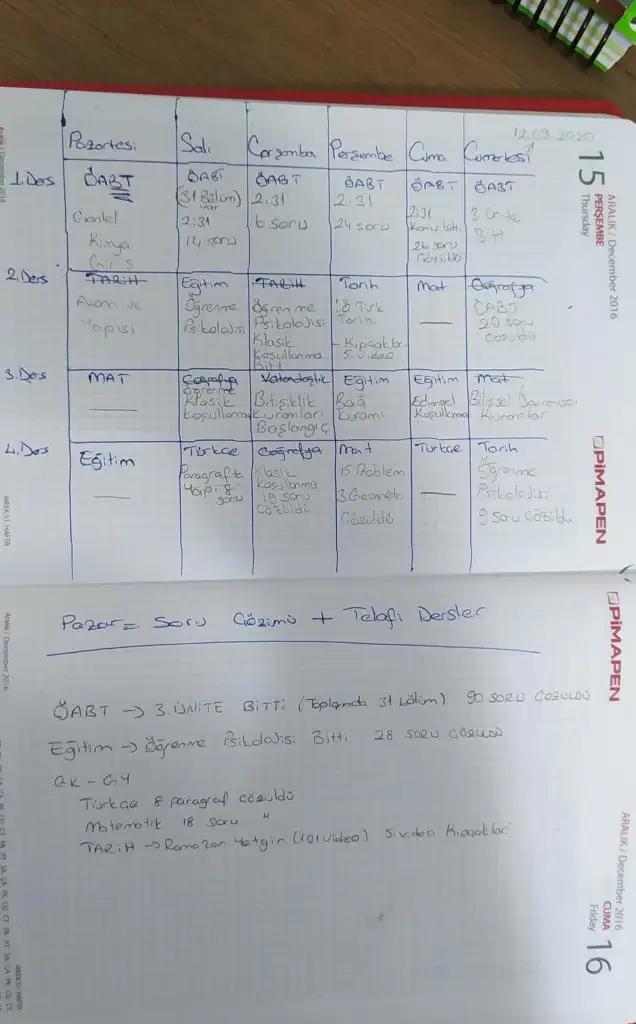 12.09.2020
Pazartesi Salı Çarşamba Perşembe Cuma Cumartesi
1.Ders ÖABT ÖABT ÖABT ÖABT ÖABT ÖABT
Genel (31 Bölüm) 2.31 2.31 2.31 3. Ünite
Kimya var 6 soru 24 soru Konu bitti Bitti
Giriş 2.31 26 soru
14 soru Çözüldü
2.Ders TARİH Eğitim TARİH Tarih Mat Coğrafya
Atom ve Öğrenme Öğrenme Türk — ÖABT
Yapısı Psikolojisi Psikolojisi Tarihi 20 soru
Klasik - Kıpçaklar Çözüldü
Koşullanma 5. video
Bitti
3.Ders MAT Coğrafya Vatandaşlık Eğitim Eğitim Mat
— Öğrenme Bitişiklik Bağ Edimsel Bilişsel Davranışçı
Klasik Kuramları Kuramı Koşullanma Kuramlar
Koşullanma Başlangıç
4.Ders Eğitim Türkçe Coğrafya Mat Türkçe Tarih
— Paragrafta Klasik 15 Problem — Öğrenme
Yapı 8 Koşullanma 3 Geometri Psikolojisi
soru 19 soru Çözüldü 9 soru Çözüldü
Çözüldü
Pazar = Soru Çözümü + Telafi Dersler
ÖABT → 3. ÜNİTE BİTTİ (Toplamda 31 bölüm) 90 SORU ÇÖZÜLDÜ
Eğitim → Öğrenme Psikolojisi Bitti 28 SORU ÇÖZÜLDÜ
GK - GY
Türkçe 8 paragraf çözüldü
Matematik 18 soru "
TARİH → Ramazan Yetgin (101 video) 5. video Kıpçaklar
ARALIK / December 2016
15 PERŞEMBE
Thursday
PİMAPEN
WEEK 51. HAFTA
Aralık / December 2016
PİMAPEN
ARALIK / December 2016
16 CUMA
Friday
Aralık / December 2016
WEEK 51. HAFTA